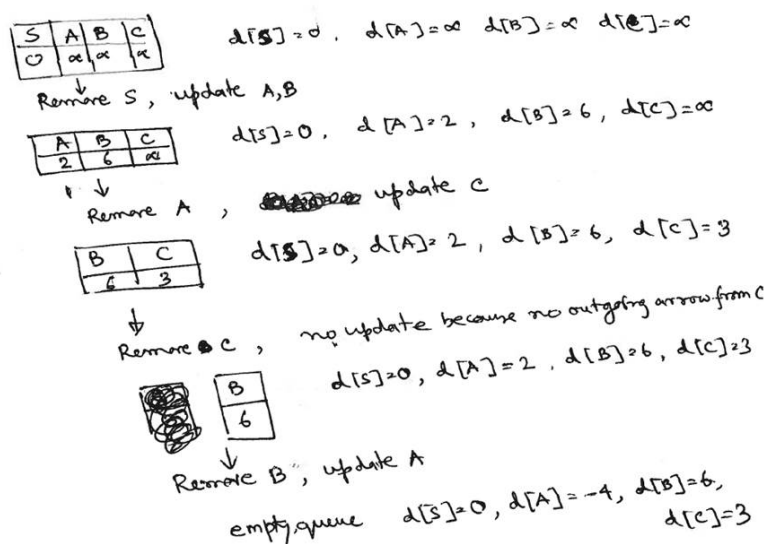 S A B C
0 ∝ ∝ ∝
d[S]=0, d[A]=∞ d[B]=∝ d[C]=∝
Remove S, update A,B
A B C
2 6 ∝
d[S]=0, d[A]=2, d[B]=6, d[C]=∞
Remove A, update C
B C
6 3
d[S]=0, d[A]=2, d[B]=6, d[C]=3
Remove C, no update because no outgoing arrow from C
B
6
d[S]=0, d[A]=2, d[B]=6, d[C]=3
Remove B, update A
empty queue d[S]=0, d[A]=-4, d[B]=6,
d[C]=3